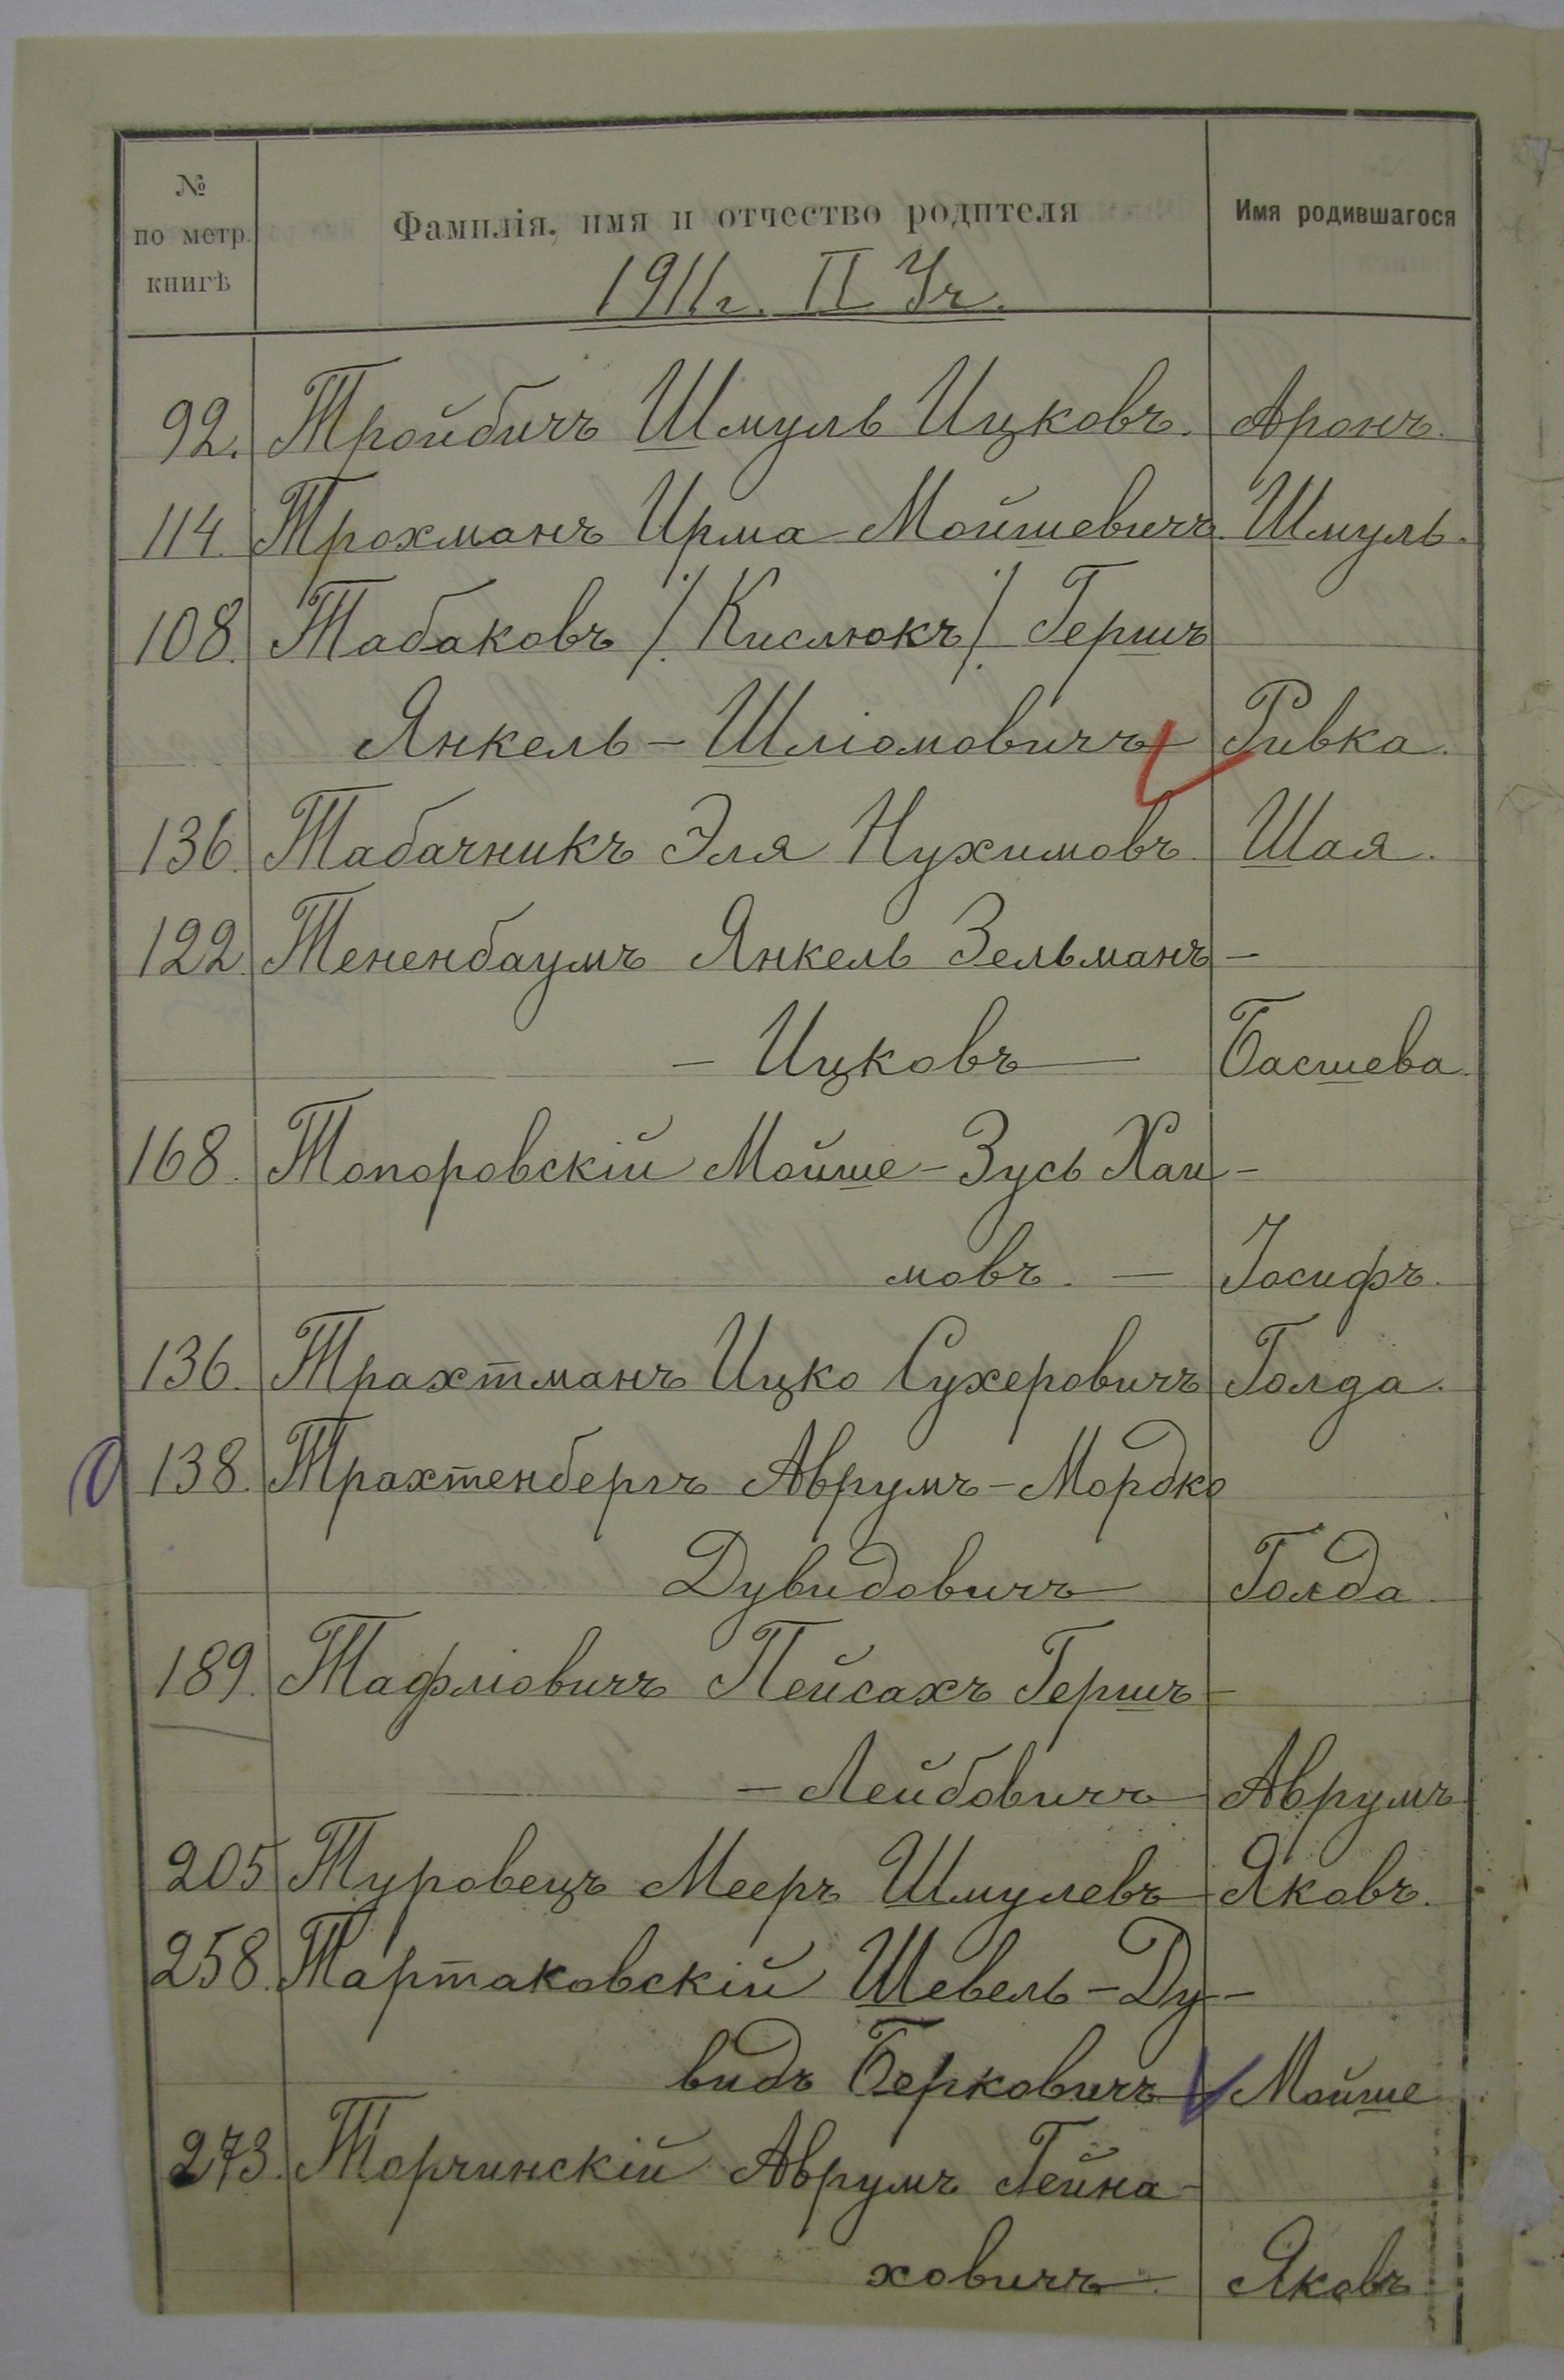 № по метр. книгѣ
Фамилія, имя и отчество родителя
Имя родившагося
1911г. II Уч.
92. Тройбичъ Шмуль Ицковъ. Аронъ.
114. Трохманъ Ирма-Мойшевичъ. Шмуль.
108. Табаковъ /Кислюкъ/ Гершъ
Янкель-Шліомовичъ Ривка.
136. Табачникъ Эля Нухимовъ. Шая.
122. Тененбаумъ Янкель Зельманъ-
- Ицковъ - Басшева.
168. Топоровскій Мойше-Зусь Хаи-
мовъ. - Іосифъ.
136. Трахтманъ Ицко Сухеровичъ Голда.
138. Трахтенбергъ Аврумъ-Мордко
Дувидовичъ Голда.
189. Тафліовичъ Пейсахъ Гершъ-
- Лейбовичъ Аврумъ
205 Туровецъ Мееръ Шмулевъ Яковъ.
258. Тартаковскій Шевель-Ду-
видъ Берковичъ Мойше
273. Торчинскій Аврумъ Гейна-
ховичъ Яковъ